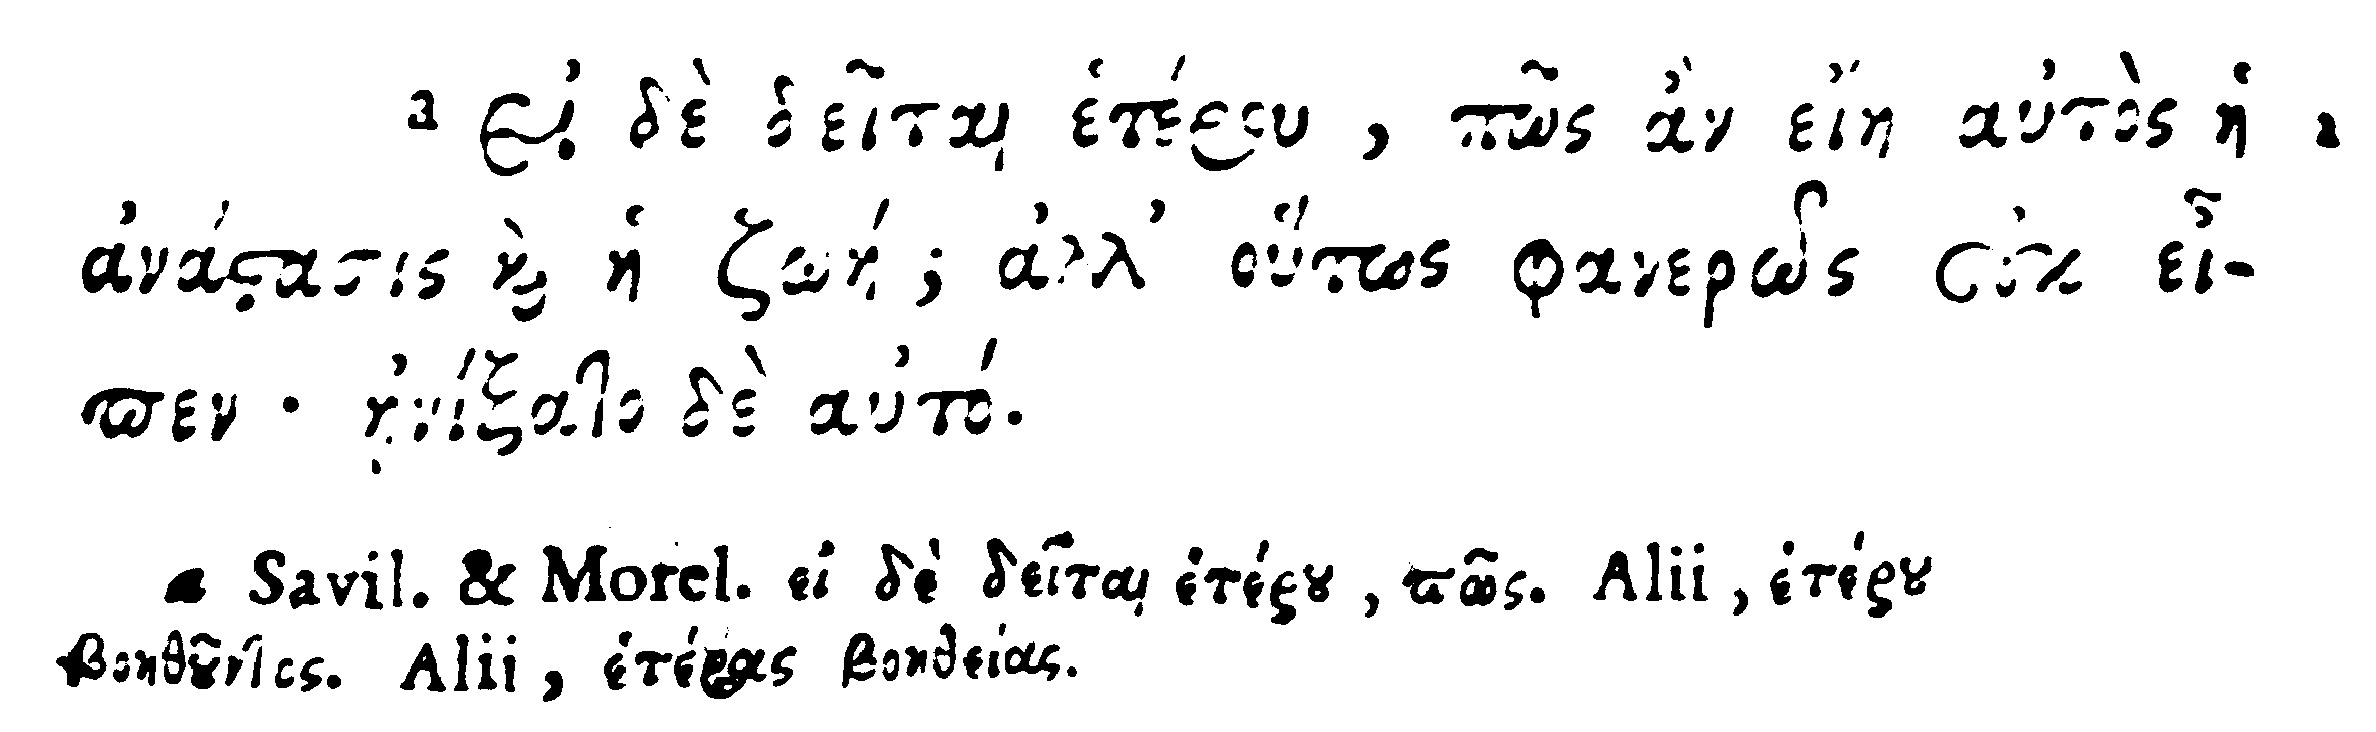 a εἰ δὲ δεῖται ἑτέρου, πῶς ἂν εἴη αὐτὸς ἡ a
ἀνάστασις καὶ ἡ ζωή; ἀλλ' οὕτως φανερῶς οὐκ εἶ-
πεν· ᾐνίξατο δὲ αὐτό.
a Savil. & Morel. εἰ δὲ δεῖται ἑτέρου, πῶς. Alii, ἑτέρου
βοηθοῦντος. Alii, ἑτέρας βοηθείας.